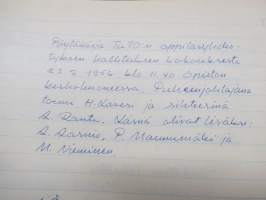 Pöytäkirja TaTO:n oppilasyhdis-
tyksen hallituksen kokouksesta
23.2.1956 klo 11.40 opiston
keskolmoneessa. Puheenjohtajana
toimi H. Laveri ja sihteerinä
L. Rantu. Läsnä olivat lisäksi
S. Sarmo, P. Mannumäki ja
M. Nieminen.